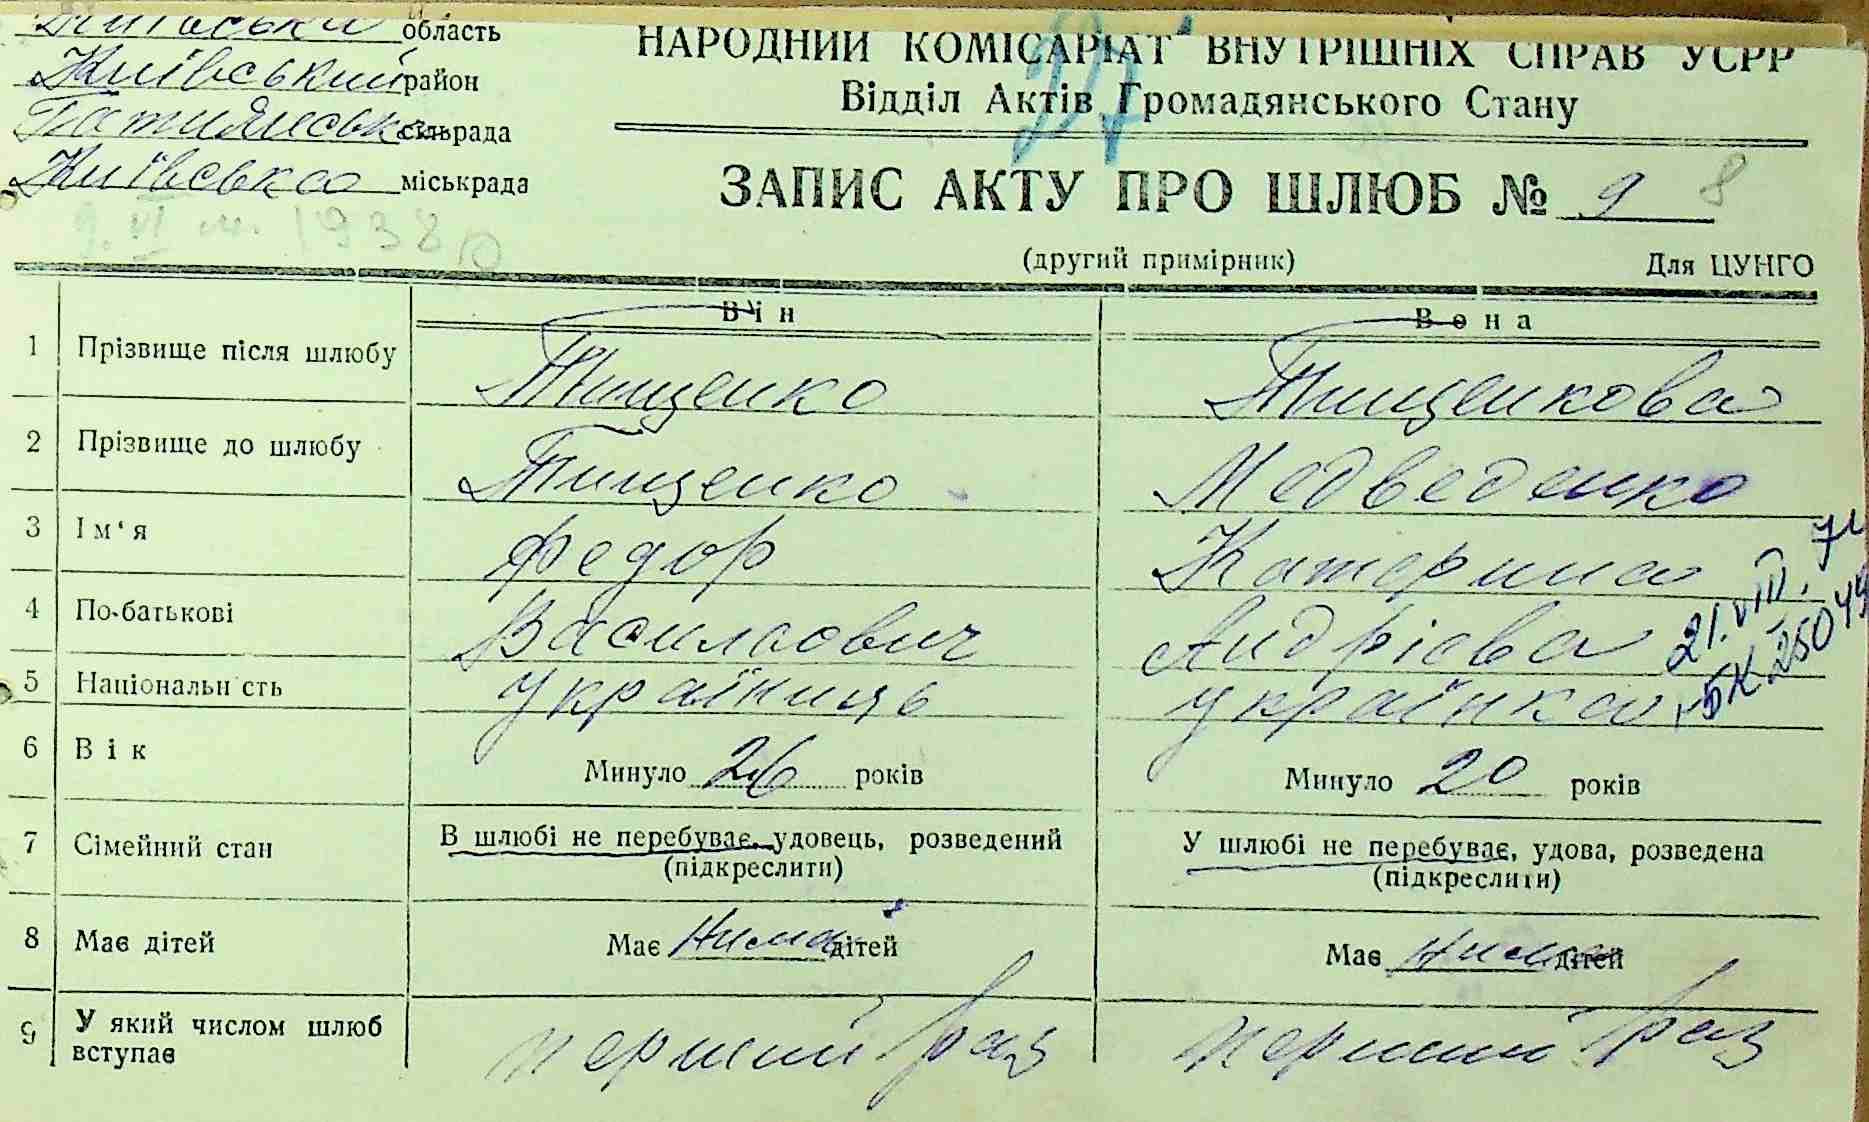 Київська область
Київський район
Гатнянська сільрада
Київська міськрада
9. VI м. 1938
НАРОДНИЙ КОМІСАРІАТ ВНУТРІШНІХ СПРАВ УСРР
Відділ Актів Громадянського Стану
27
ЗАПИС АКТУ ПРО ШЛЮБ № 9 8
(другий примірник) Для ЦУНГО
Він Вона
1 Прізвище після шлюбу Тищенко Тищенкова
2 Прізвище до шлюбу Тищенко Медведенко
3 Ім'я Федор Катерина
4 По-батькові Василаович Андріева
5 Національність україниць українка
21.VIII.71
ІБК 25044
6 Вік Минуло 26 років Минуло 20 років
7 Сімейний стан В шлюбі не перебуває, удовець, розведений У шлюбі не перебуває, удова, розведена
(підкреслити) (підкреслити)
8 Має дітей Має Нима дітей Має Нима дітей
9 У який числом шлюб вступає перший раз перший раз